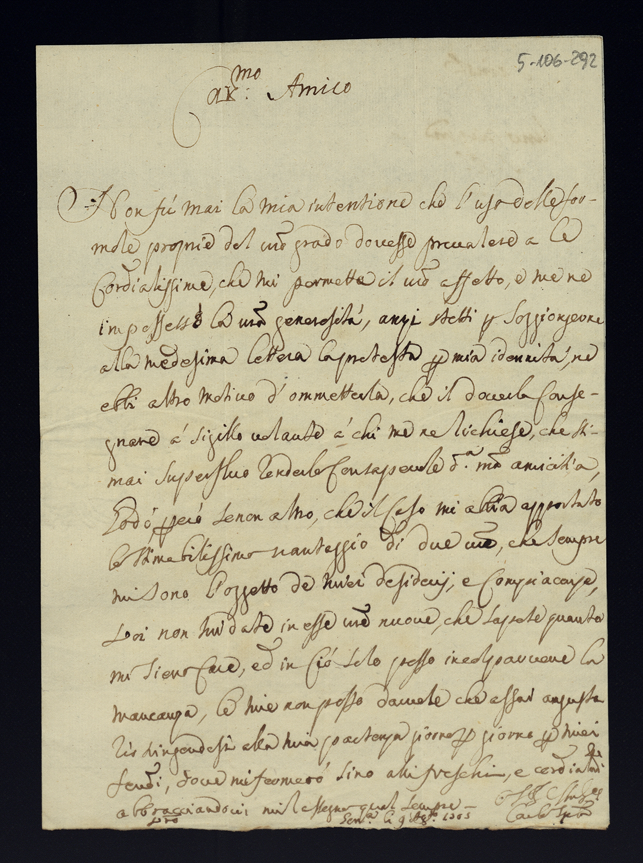 5-106-292
Amico
Non fù mai la mia intentione che l'uso delle for-
mole proprie del vro grado dovesse prevalere a le
Cordialissime, che mi permette il vro affetto, e me ne
la vra generosità, anzi stetti p soggiongere
alla medesima lettera la protesta p mia idennità, ne
ebbi altro motivo d'ommetterla, che il doverla conse-
gnare à sigillo volante à chi me ne richiese, che sti-
mai superfluo renderlo consapevole d. amicitia,
però se non altro, che il caso mi abbia apportato
lo stimabilissimo vantaggio di due vre, che sempre
mi sono l'oggetto de miei desiderij, e
voi non mi date in esse vre nuove, che sapete quanto
mi sieno care, ed in ciò solo posso incolparvene la
mancanza, le mie non posso darvele che assai anguste
alla mia partenza p giorno p miei
feudi, dove mi fermerò sino a li freschi, e
abbracciandovi mi qual sempre